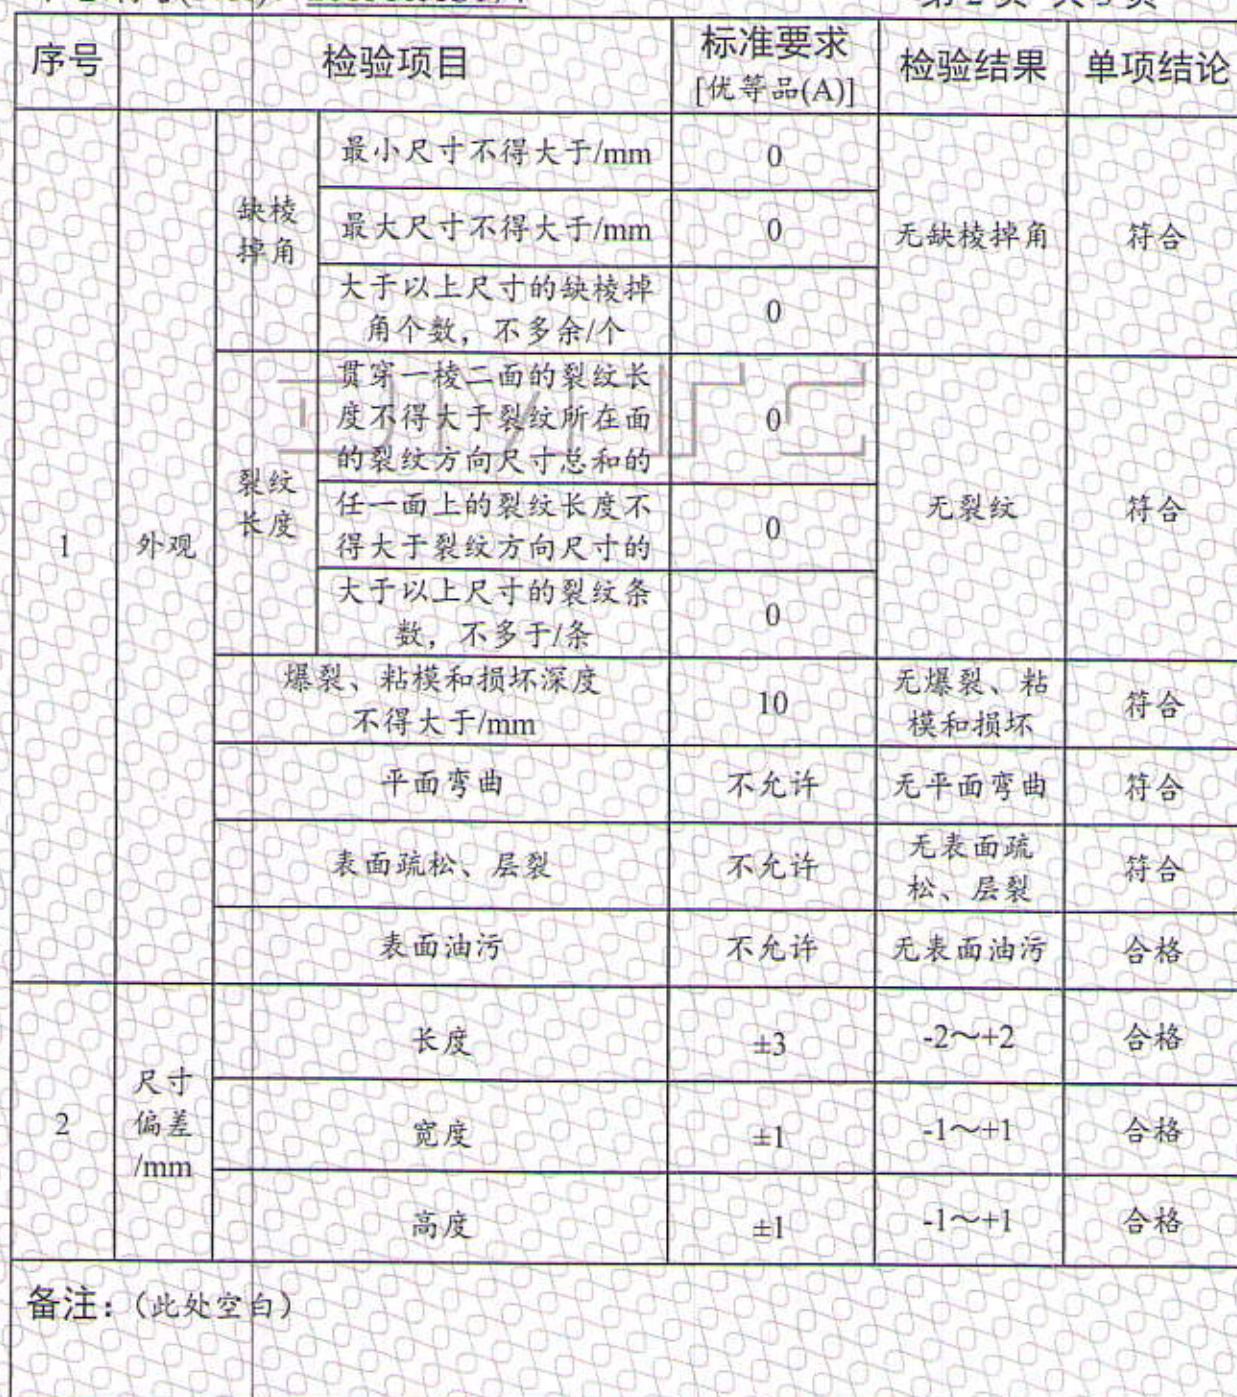 第 2 页 共 3 页
序号
检验项目
标准要求
[优等品(A)]
检验结果
单项结论
1
外观
缺棱
掉角
最小尺寸不得大于/mm
0
最大尺寸不得大于/mm
0
大于以上尺寸的缺棱掉
角个数，不多余/个
0
无缺棱掉角
符合
裂纹
长度
贯穿一棱二面的裂纹长
度不得大于裂纹所在面
的裂纹方向尺寸总和的
0
任一面上的裂纹长度不
得大于裂纹方向尺寸的
0
大于以上尺寸的裂纹条
数，不多于/条
0
无裂纹
符合
爆裂、粘模和损坏深度
不得大于/mm
10
无爆裂、粘
模和损坏
符合
平面弯曲
不允许
无平面弯曲
符合
表面疏松、层裂
不允许
无表面疏
松、层裂
符合
表面油污
不允许
无表面油污
合格
2
尺寸
偏差
/mm
长度
±3
-2～+2
合格
宽度
±1
-1～+1
合格
高度
±1
-1～+1
合格
备注：（此处空白）